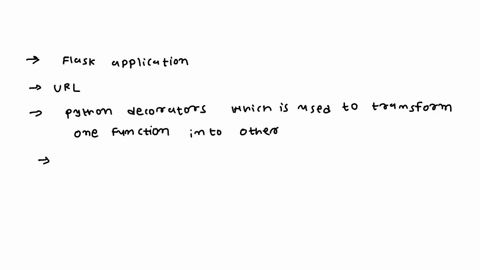 → Flask application
→ URL
→ python decorators which is used to transform
one function into other
→